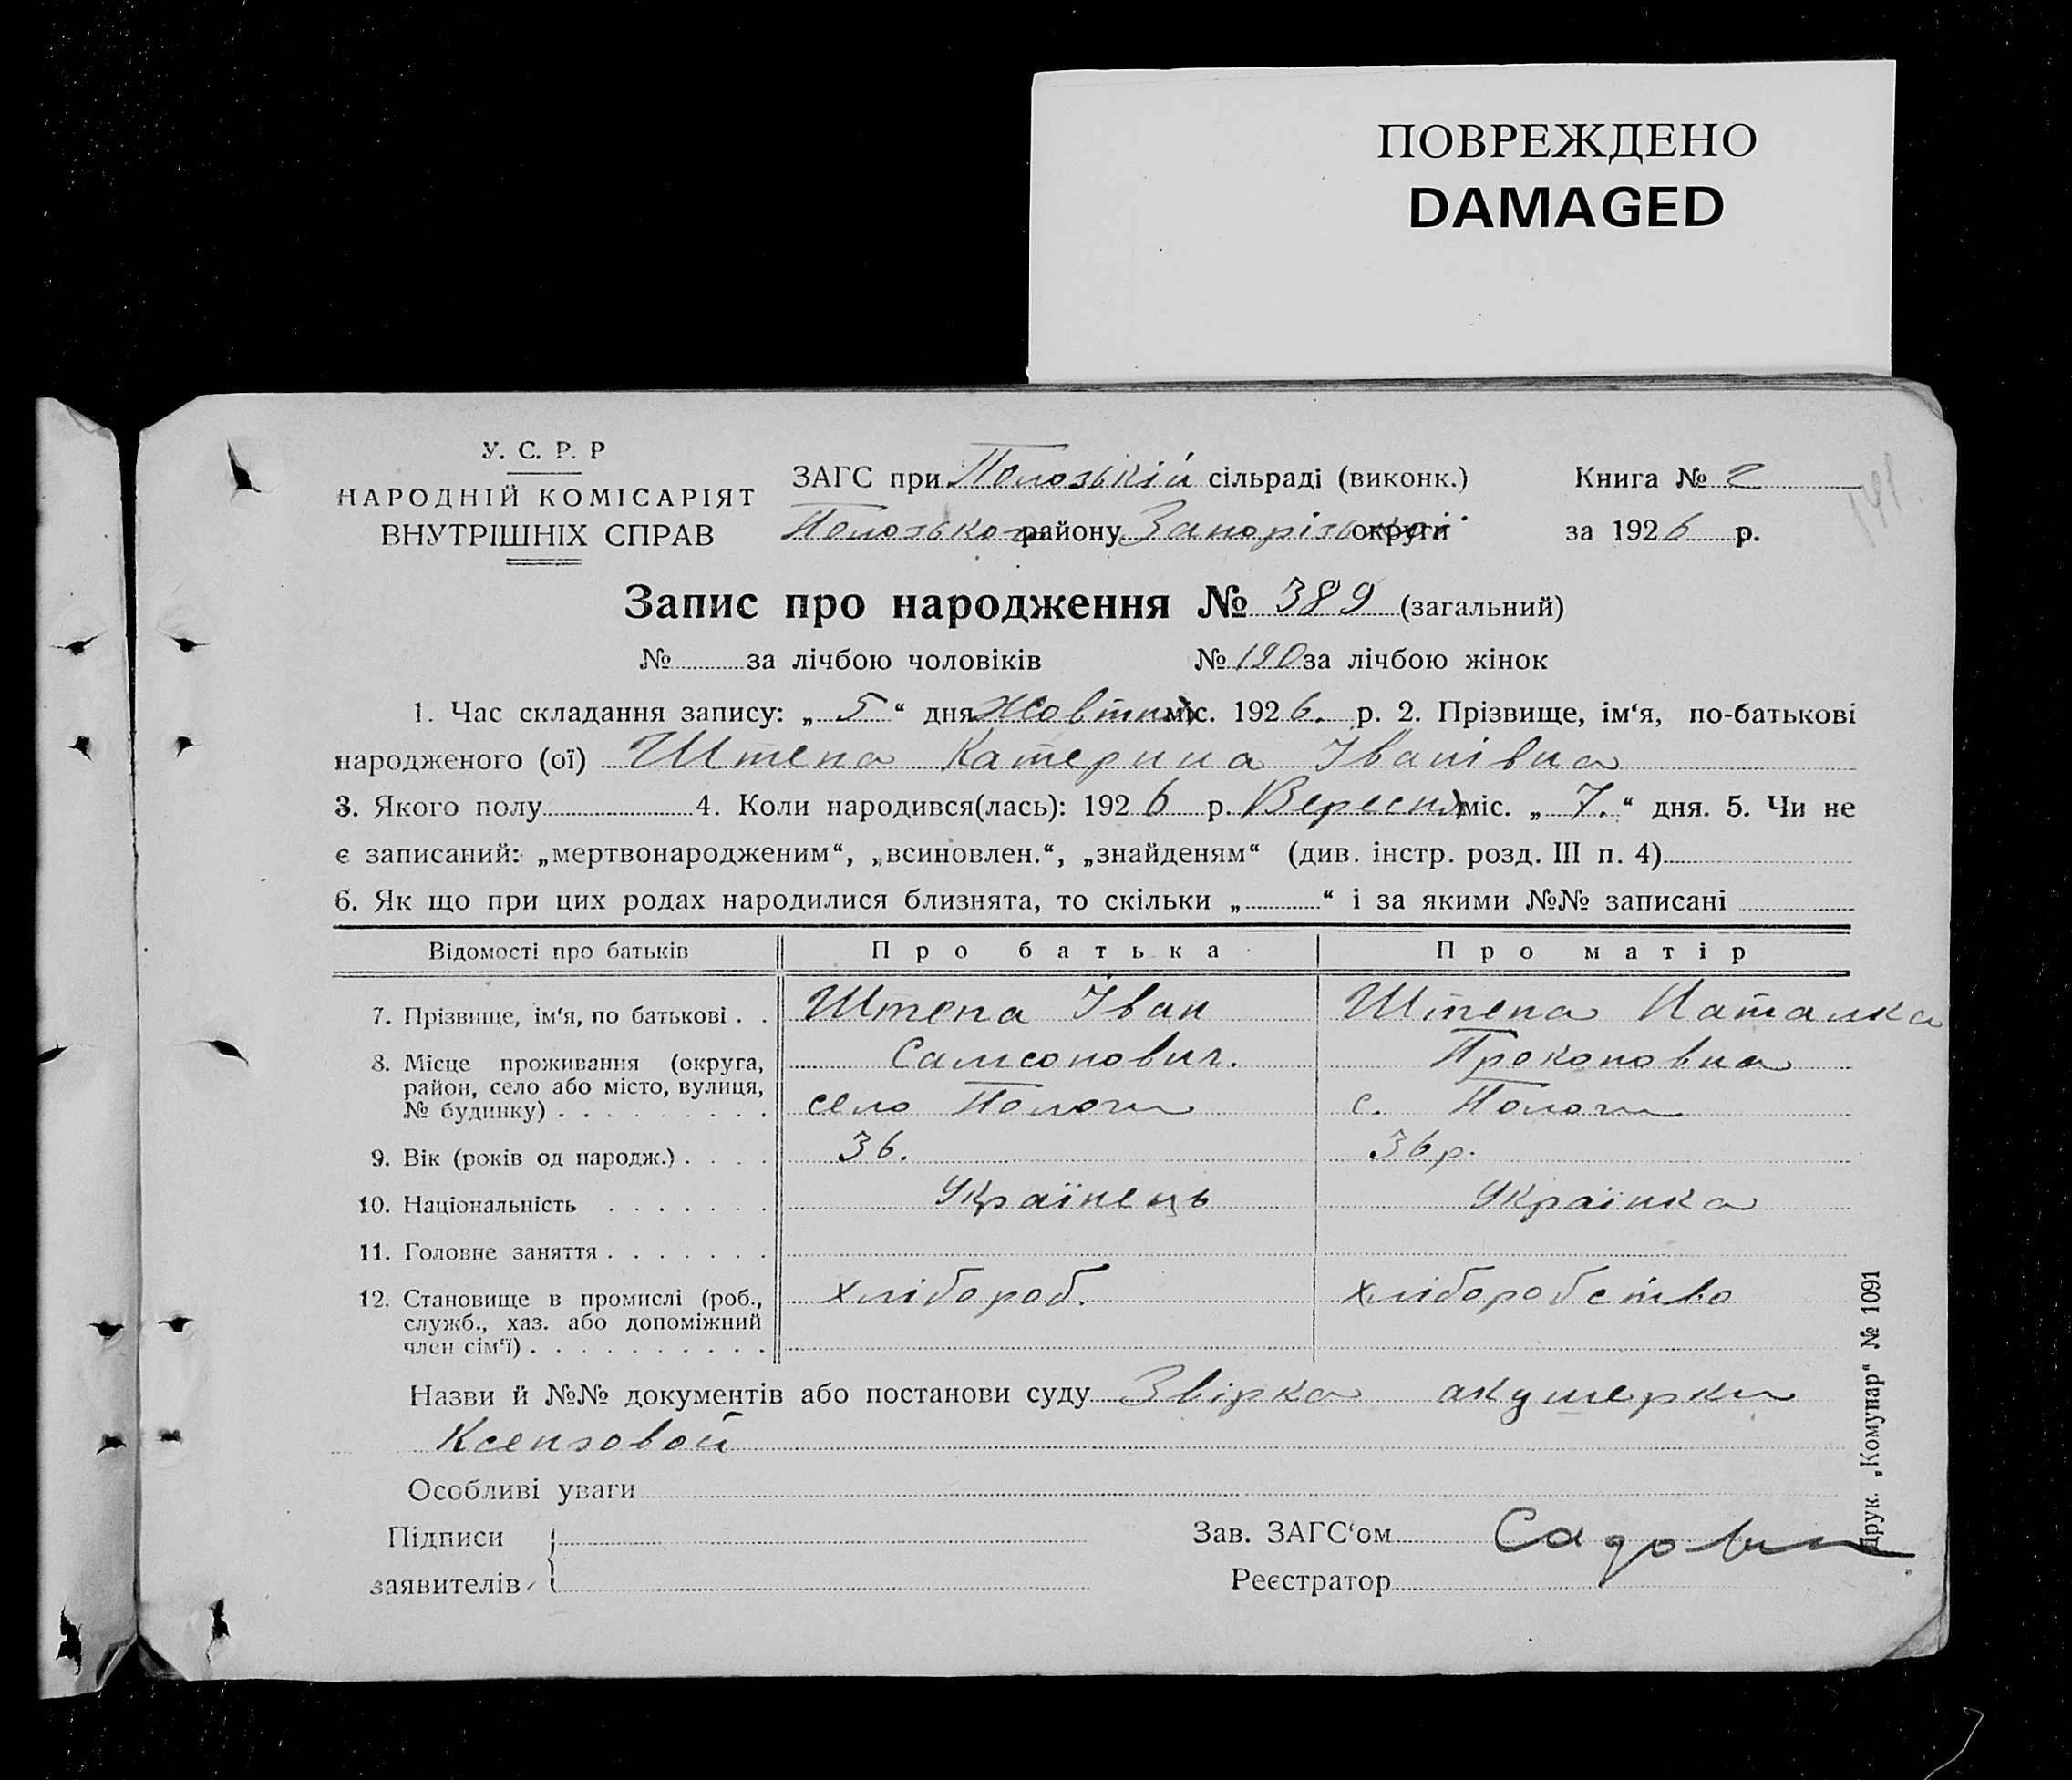 ПОВРЕЖДЕНО
DAMAGED
У. С. Р. Р
НАРОДНІЙ КОМІСАРІЯТ
ВНУТРІШНІХ СПРАВ
ЗАГС при Полозькій сільраді (виконк.)
Полозького району Запорізької округи
Книга № 2
за 1926 р.
141
Запис про народження № 389 (загальний)
№ за лічбою чоловіків № 190 за лічбою жінок
1. Час складання запису: „ 5 “ дня Жовтня міс. 1926. р. 2. Прізвище, ім‘я, по-батькові
народженого (ої) Штепа Катерина Іванівна
3. Якого полу 4. Коли народився(лась): 1926 р. Вересня міс. „ 7. “ дня. 5. Чи не
є записаний: „мертвонародженим“, „всиновлен.“, „знайденям“ (див. інстр. розд. III п. 4)
6. Як що при цих родах народилися близнята, то скільки „ “ і за якими №№ записані
Відомості про батьків Про батька Про матір
7. Прізвище, ім‘я, по батькові . . Штепа Іван Штепа Наталка
Самсонович. Прокоповна
8. Місце проживання (округа,
район, село або місто, вулиця,
№ будинку) . . . . . . . . . село Пологи с. Пологи
9. Вік (років од народж.) . . . . 36. 36 р.
10. Національність . . . . . . . Українець Українка
11. Головне заняття . . . . . . .
12. Становище в промислі (роб., хлібороб. хліборобство
служб., хаз. або допоміжний
член сім‘ї) . . . . . . . . . .
Назви й №№ документів або постанови суду Звірка акушерки
Ксензовой
Особливі уваги
Підписи
заявителів
Зав. ЗАГС‘ом
Реєстратор
Друк. „Комунар“ № 1091